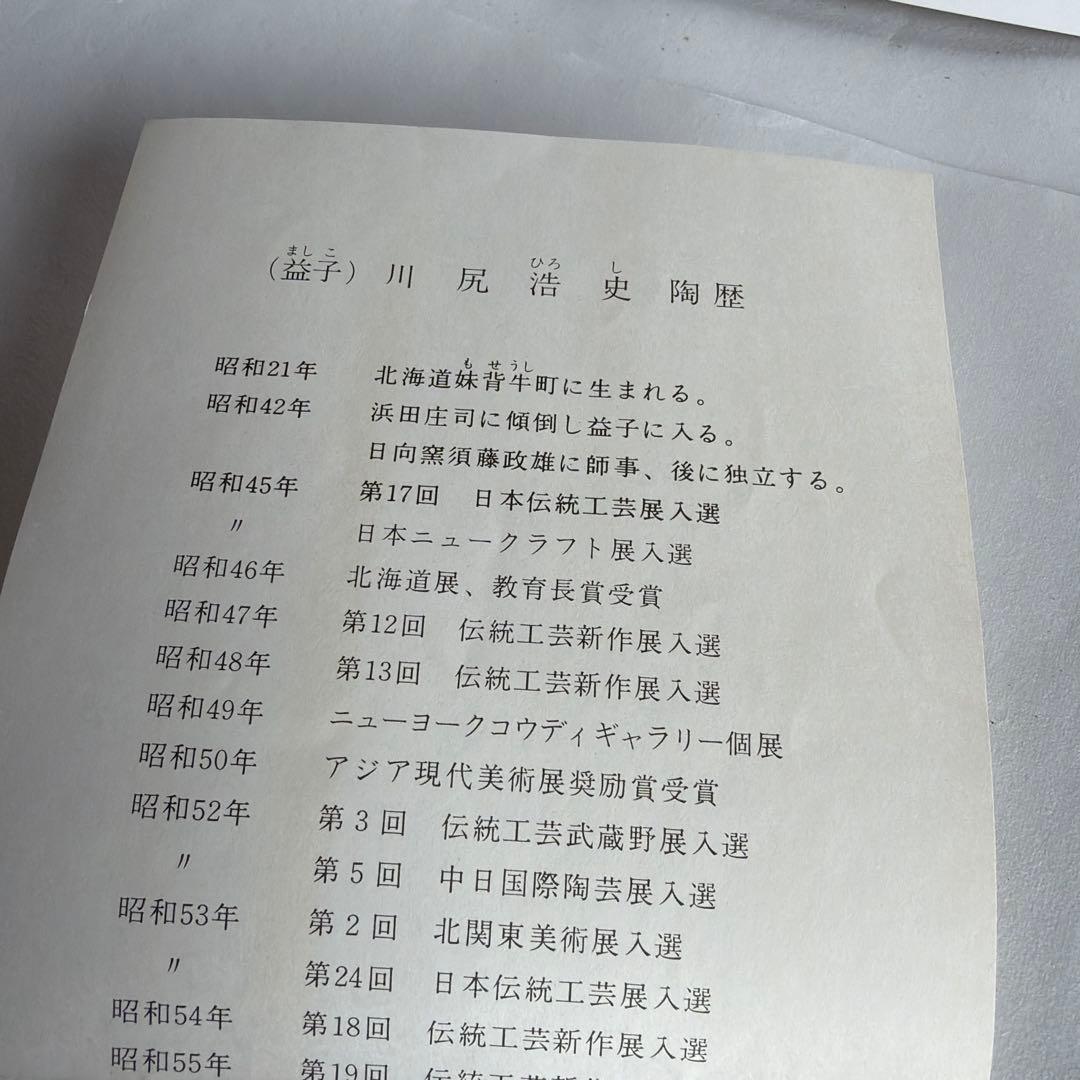 (益子) 川尻浩史陶歴
ましこ ひろし
昭和21年 北海道妹背牛町に生まれる。
もせうし
昭和42年 浜田庄司に傾倒し益子に入る。
日向窯須藤政雄に師事、後に独立する。
昭和45年 第17回 日本伝統工芸展入選
〃 日本ニュークラフト展入選
昭和46年 北海道展、教育長賞受賞
昭和47年 第12回 伝統工芸新作展入選
昭和48年 第13回 伝統工芸新作展入選
昭和49年 ニューヨークコウディギャラリー個展
昭和50年 アジア現代美術展奨励賞受賞
昭和52年 第3回 伝統工芸武蔵野展入選
〃 第5回 中日国際陶芸展入選
昭和53年 第2回 北関東美術展入選
〃 第24回 日本伝統工芸展入選
昭和54年 第18回 伝統工芸新作展入選
昭和55年 第19回 伝統工芸新